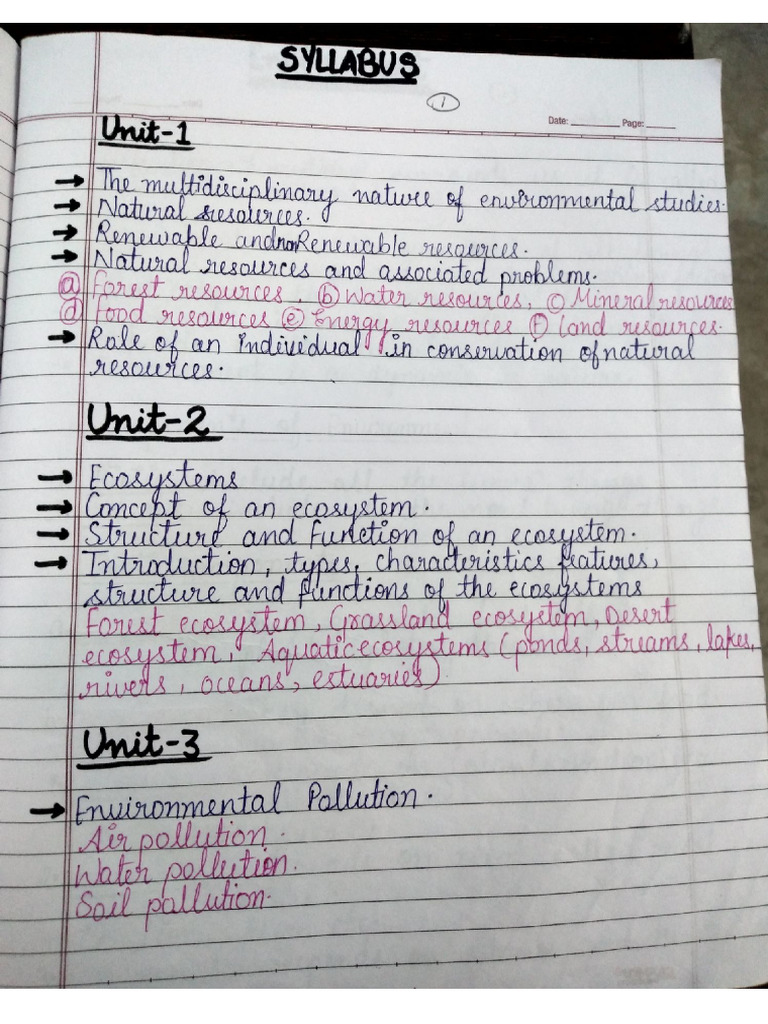 SYLLABUS
1
Date: ________ Page: _____
Unit-1
→ The multidisciplinary nature of environmental studies.
→ Natural resources.
→ Renewable and non Renewable resources.
→ Natural resources and associated problems.
(a) Forest resources, (b) Water resources, (c) Mineral resources
(d) Food resources (e) Energy resources (f) Land resources.
→ Role of an individual in conservation of natural
resources.
Unit-2
→ Ecosystems
→ Concept of an ecosystem.
→ Structure and function of an ecosystem.
→ Introduction, types, characteristics features,
structure and functions of the ecosystems
Forest ecosystem, Grassland ecosystem, Desert
ecosystem, Aquatic ecosystems (ponds, streams, lakes,
rivers, oceans, estuaries).
Unit-3
→ Environmental Pollution.
Air pollution.
Water pollution.
Soil pollution.